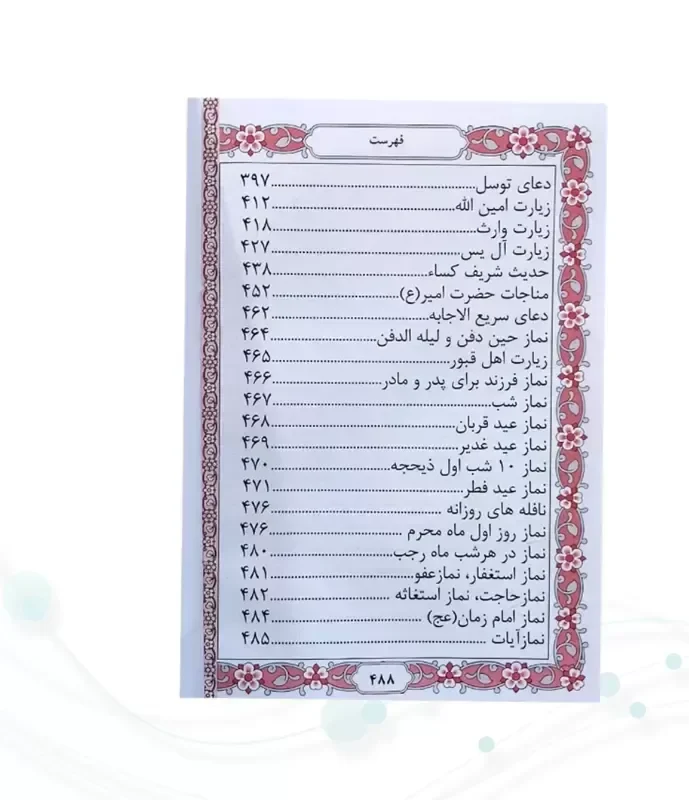 فهرست
دعای توسل...............................................۳۹۷
زیارت امین الله..........................................۴۱۲
زیارت وارث...............................................۴۱۸
زیارت آل یس............................................۴۲۷
حدیث شریف کساء....................................۴۳۸
مناجات حضرت امیر(ع)..............................۴۵۲
دعای سریع الاجابه.....................................۴۶۲
نماز حین دفن و لیله الدفن........................۴۶۴
زیارت اهل قبور.........................................۴۶۵
نماز فرزند برای پدر و مادر.........................۴۶۶
نماز شب..................................................۴۶۷
نماز عید قربان..........................................۴۶۸
نماز عید غدیر..........................................۴۶۹
نماز ۱۰ شب اول ذیحجه...........................۴۷۰
نماز عید فطر............................................۴۷۱
نافله های روزانه .......................................۴۷۶
نماز روز اول ماه محرم ..............................۴۷۶
نماز در هرشب ماه رجب...........................۴۸۰
نماز استغفار، نمازعفو................................۴۸۱
نمازحاجت، نماز استغاثه ...........................۴۸۲
نماز امام زمان(عج) ..................................۴۸۴
نمازآیات ..................................................۴۸۵
۴۸۸